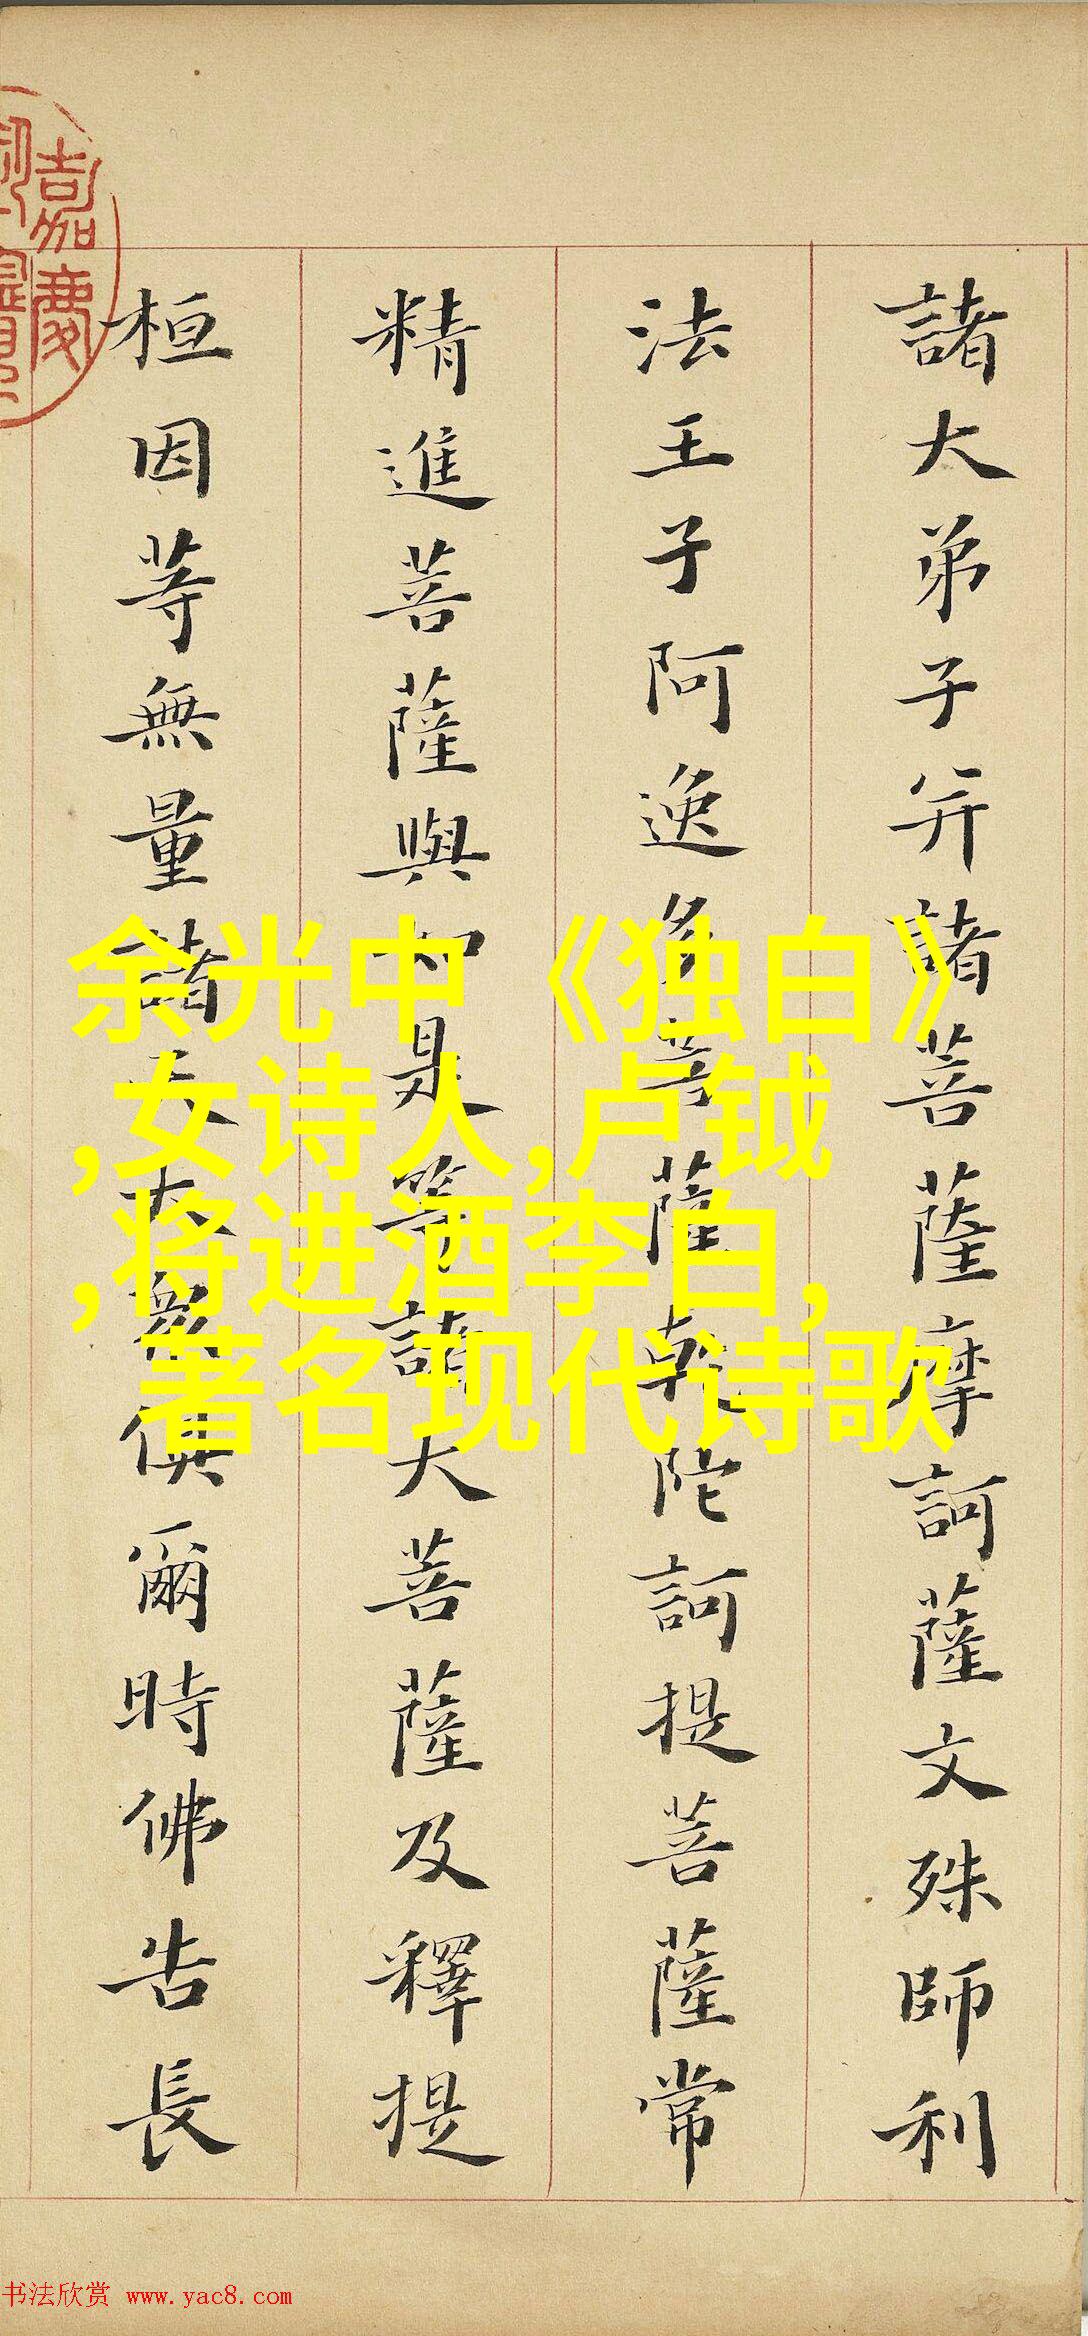 諸大弟子并諸菩薩摩訶薩文殊師利
法王子阿逸多菩薩乾陀訶提菩薩常
精進菩薩與如是等諸大菩薩及釋提
桓因等無量諸天大眾俱爾時佛告長
嘉慶
余光中《独白》
,女诗人,卢钺
,将进酒李白,
著名现代诗歌
书法欣赏 www.yac8.com